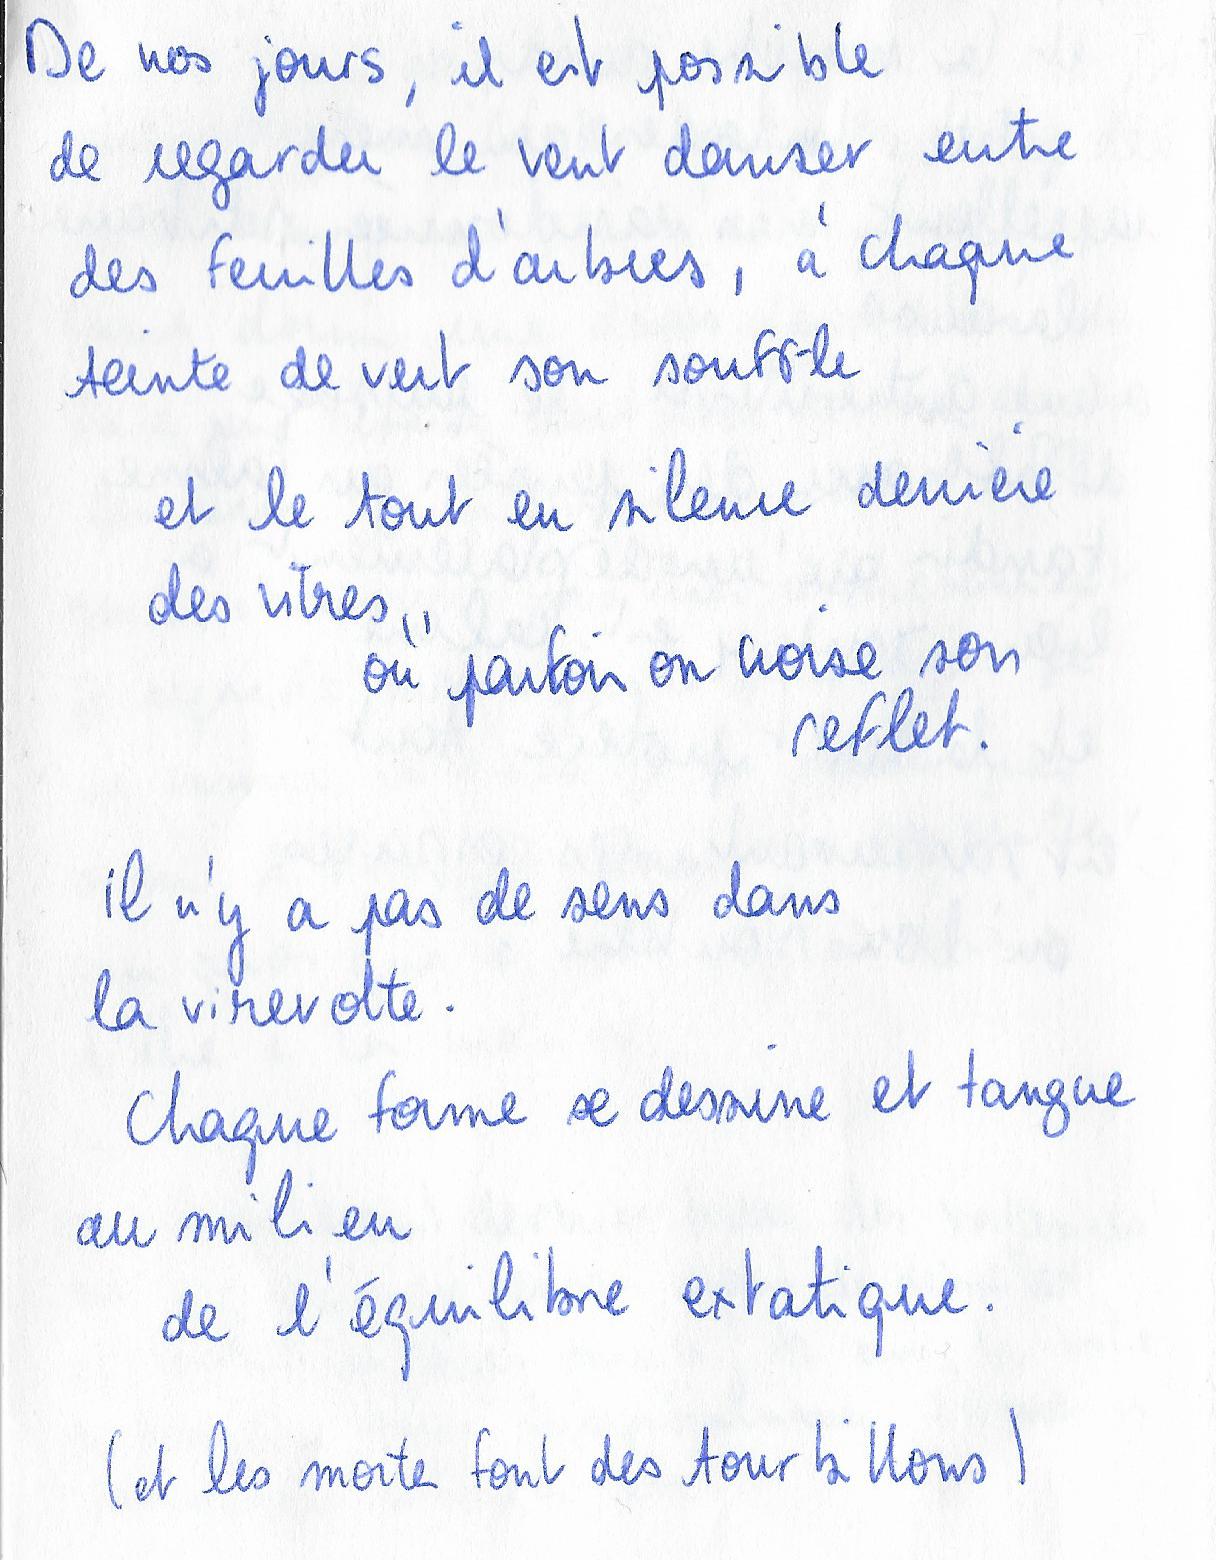 De nos jours, il est possible
de regarder le vent danser entre
des feuilles d'arbres, à chaque
teinte de vert son souffle
et le tout en silence derrière
des vitres,
où parfois on croise son
reflet.
il n'y a pas de sens dans
la virevolte.
Chaque forme se dessine et tangue
au milieu
de l'équilibre extatique.
(et les morts font des tourbillons)